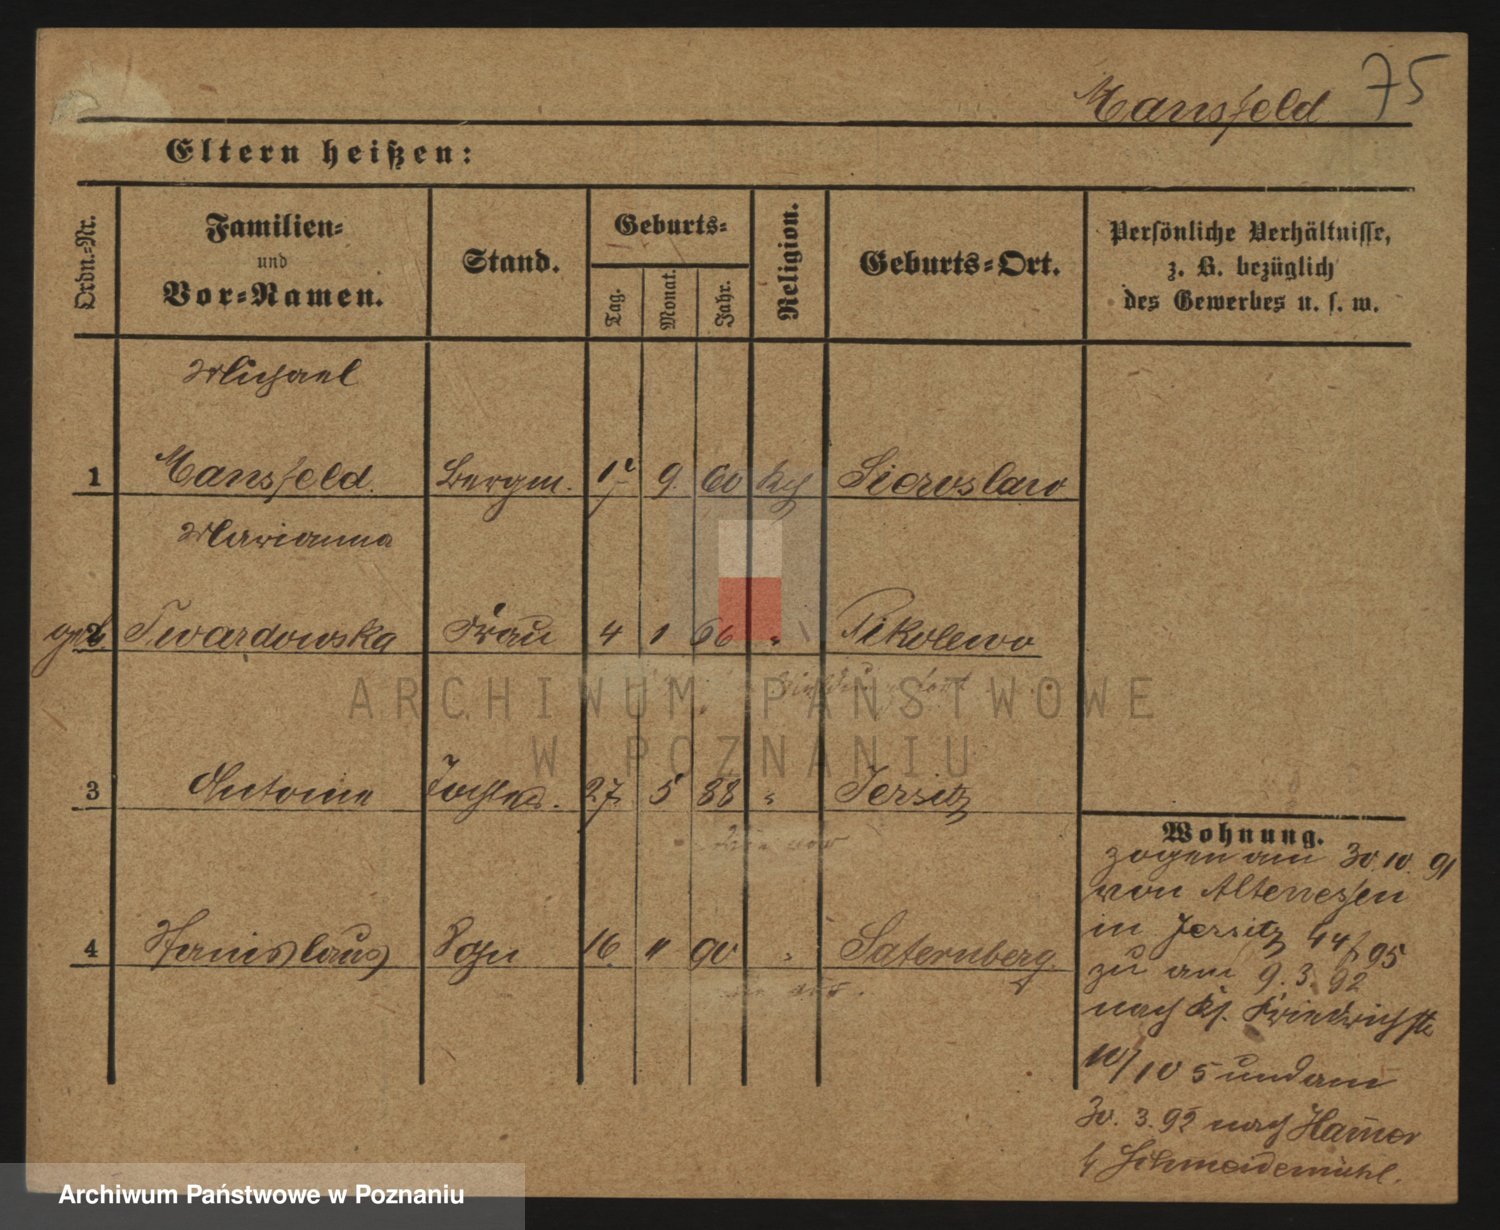 Mansfeld 75
Eltern heißen:
Ordn.-Nr.
Familien-
und
Vor-Namen.
Stand.
Geburts-
Tag.
Monat.
Jahr.
Religion.
Geburts-Ort.
Persönliche Verhältnisse,
z. B. bezüglich
des Gewerbes u. s. w.
Michael
1 Mansfeld Bergm. 17 9. 60 kth Sieroslaw
Marianna
geb. 2 Twardowska Frau 4 1 66 " Pikolewo
3 Antonie Tochter. 27 5 88 " Jersitz
4 Stanislaus Sohn 16. 11 90 " Saternberg
Wohnung.
zogen am 30. 10. 91
von Altenessen
in Jersitz 44/95
zu am 9. 3. 92
nach Kl. Friedrichstr
10/10 5 und am
30. 3. 92 nach Hamer
b/ Schneidemühl.
ARCHIWUM PAŃSTWOWE
W POZNANIU
Archiwum Państwowe w Poznaniu